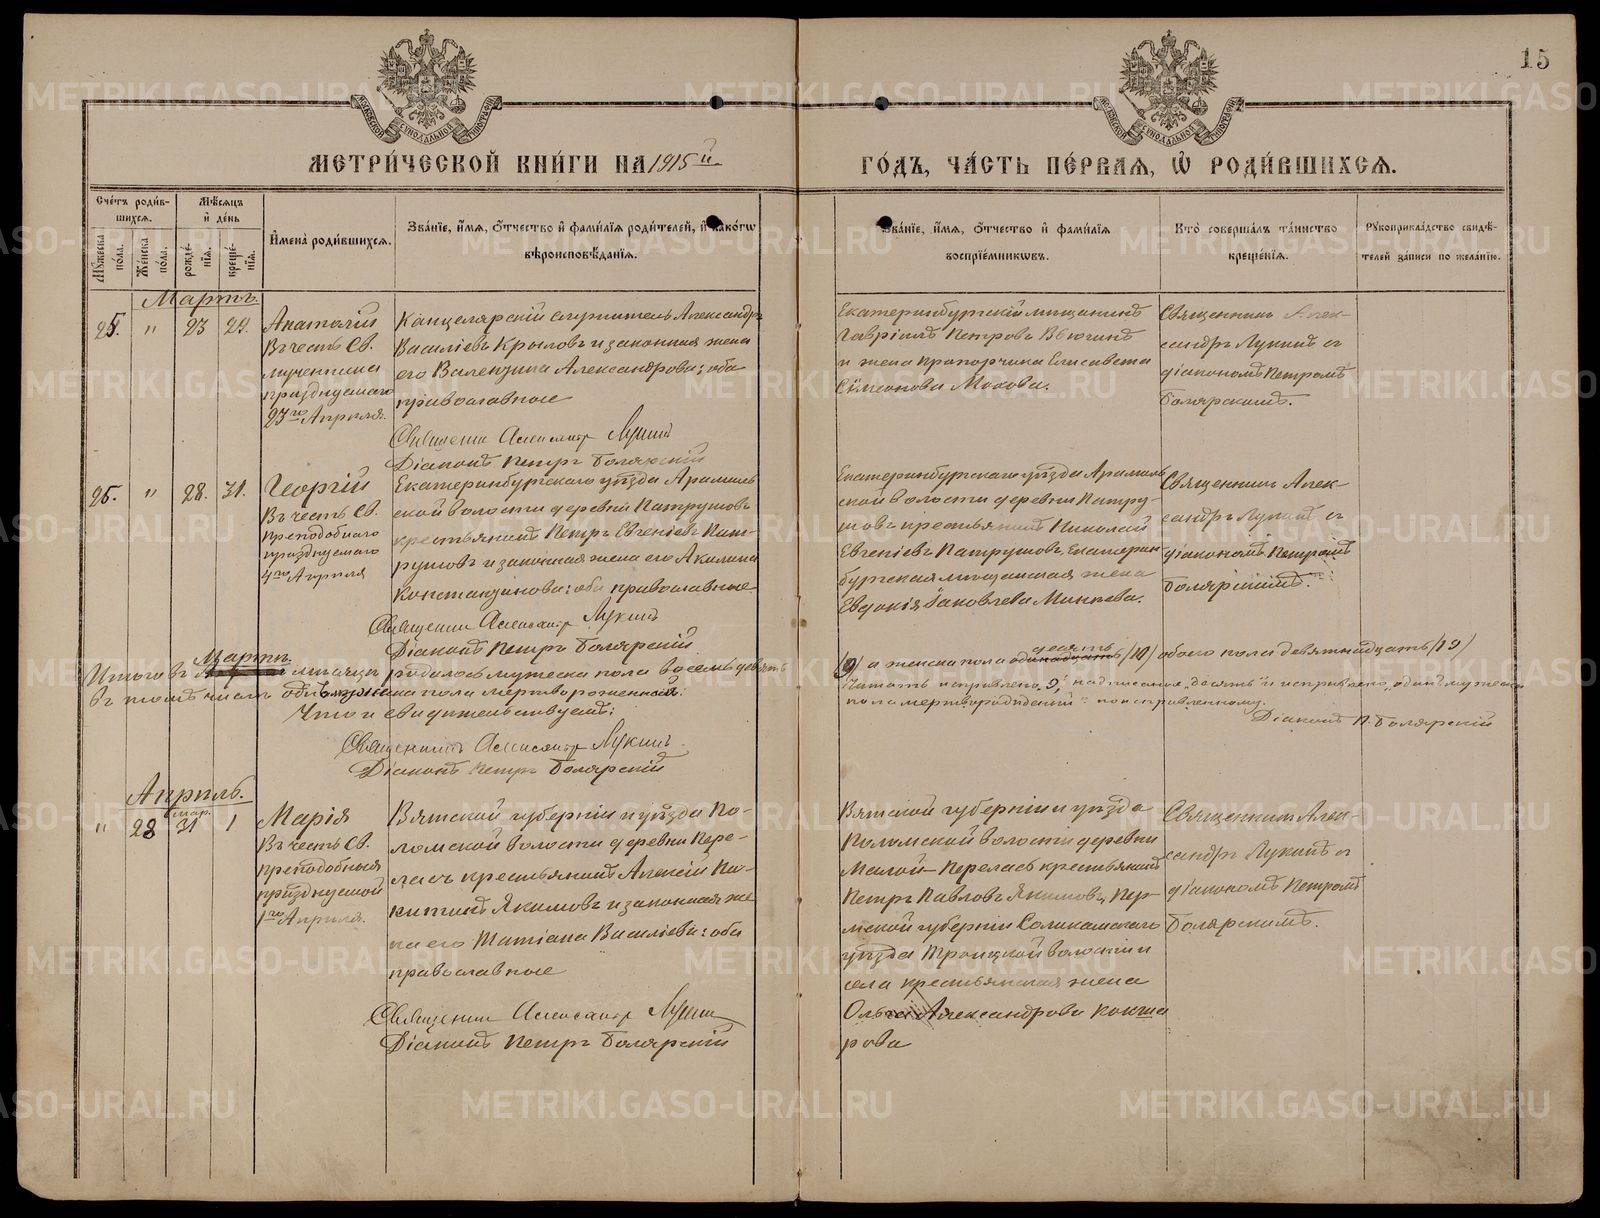 15
МЕТРИ́ЧЕСКОЙ КНИ́ГИ НА 1915 й
ГО́ДЪ, ЧА́СТЬ ПЕ́РВАЯ, Ѡ РОДИ́ВШИХСЯ.
Сче́тъ роди́в-
шихся.
Му́жеска по́ла.
Же́нска по́ла.
Мѣ́сяцъ
и҆ де́нь
рожде́нїя.
креще́нїя.
И҆мена̀ роди́вшихся.
Зва́нїе, и҆́мя, ѻ҆́тчество и҆ фами́лїя роди́телей, и҆ како́гѡ
вѣроисповѣ́данїя.
Зва́нїе, и҆́мя, ѻ҆́тчество и҆ фами́лїя
воспрїе́мникѡвъ.
Кто̀ соверша́лъ та́инство
креще́нїя.
Рꙋкоприкла́дство свидѣ́-
телей за́писи по жела́нїю.
Мартъ.
25. " 23 29.
Анатолій
Въ честь Св.
мученика
празднуемаго
23го Апрѣля.
Канцелярскій служитель Александръ
Василіевъ Крыловъ и законная жена
его Валентина Александрова; оба
православные
Священникъ Александръ Лукинъ
Діаконъ Петръ Боярскій
Екатеринбургскій мѣщанинъ
Гавріилъ Петровъ Вьюгинъ
и жена прапорщика Елисавета
Сѵмеонова Мохова.
Священникъ Алек-
сандръ Лукинъ съ
діакономъ Петромъ
Болярскимъ.
26. " 28. 31.
Георгій
Въ честь Св.
преподобнаго
празднуемаго
4го Апрѣля
Екатеринбургскаго уѣзда Арамиль
ской волости деревни Патрушевъ
крестьянинъ Петръ Евгеніевъ Пат-
рушовъ и законная жена его Акилина
Константинова; оба православные
Священникъ Александръ Лукинъ
Діаконъ Петръ Болярскій
Екатеринбургскаго уѣзда Арамиль
ской волости деревни Патру-
шовъ крестьянинъ Николай
Евгеніевъ Патрушовъ, Екатерин
бургская мѣщанская жена
Евдокія Іаковлева Минѣева.
Священникъ Алек-
сандръ Лукинъ съ
діакономъ Петромъ
Болярскимъ.
Мартѣ
Итого въ мѣсяцѣ родилось мужеска пола девять
(9) а женска пола десять (10) обоего пола девятнадцать (19)
въ томъ числѣ одинъ мужеска пола мертворожденный:
Читать исправлено "9", надписанное "десять" и исправлено "одинъ мужеска
пола мертворожденный" по исправленному.
Діаконъ П. Болярскій
Что и свидѣтельствуемъ:
Священникъ Александръ Лукинъ.
Діаконъ Петръ Болярскій
Апрѣль.
мар.
" 28 31 1
Марія
Въ честь Св.
преподобныя
празднуемой
1го Апрѣля.
Вятской губерніи и уѣзда По-
ломской волости деревни Пере-
ласъ крестьянинъ Алексій Ни-
китинъ Якимовъ и законная же
на его Татіана Василіева; оба
православные
Священникъ Александръ Лукинъ
Діаконъ Петръ Болярскій
Вятской губерніи и уѣзда
Поломской волости деревни
Малой-Перелазъ крестьянинъ
Петръ Павловъ Якимовъ, Пер-
мской губерніи Соликамскаго
уѣзда Троицкой волости и
села крестьянская жена
Ольга Александрова Кокша
рова
Священникъ Алек-
сандръ Лукинъ съ
діакономъ Петромъ
Болярскимъ.
METRIKI.GASO-URAL.RU